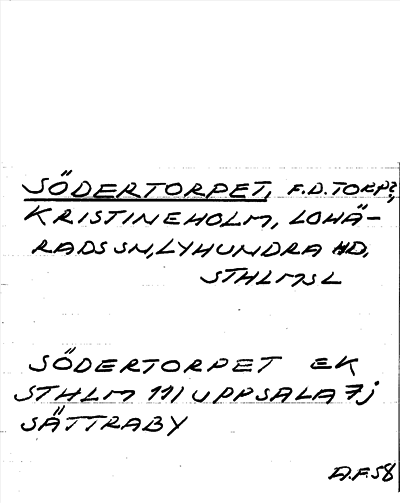 SÖDERTORPET, F.D. TORP?,
KRISTINEHOLM, LOHÄ-
RADS SN, LYHUNDRA HD,
STHLMS L
SÖDERTORPET EK
STHLM 111 UPPSALA 7j
SÄTTRABY
A.F.58